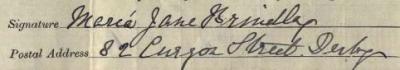 Signature Maria Jane Brindley
Postal Address 82 Curzon Street. Derby